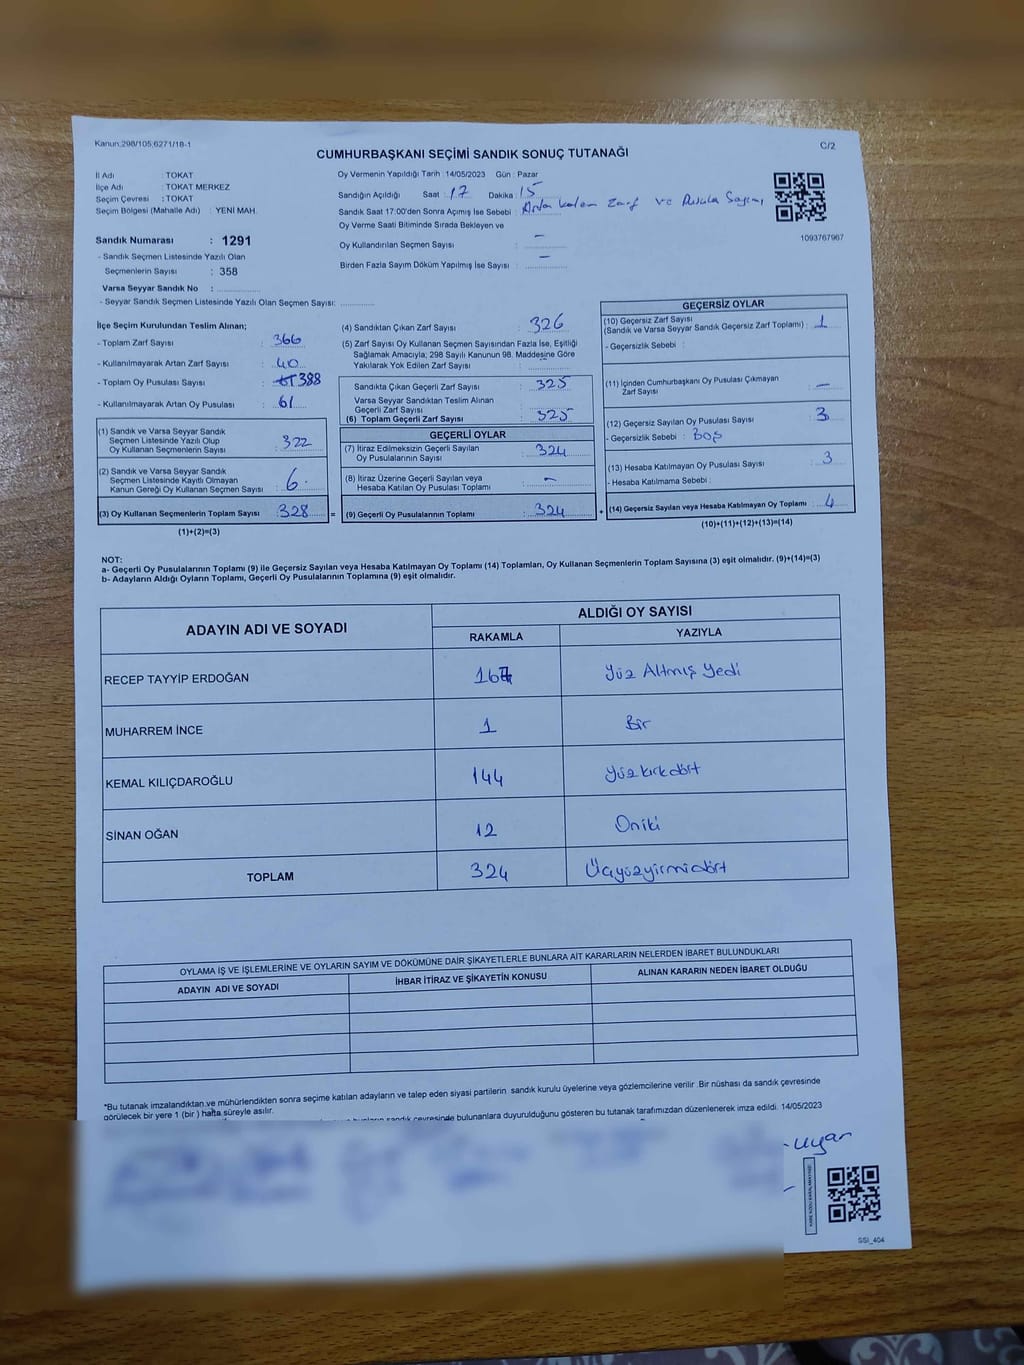 Kanun;298/105;6271/18-1
C/2
CUMHURBAŞKANI SEÇİMİ SANDIK SONUÇ TUTANAĞI
İl Adı : TOKAT
İlçe Adı : TOKAT MERKEZ
Seçim Çevresi : TOKAT
Seçim Bölgesi (Mahalle Adı) : YENİ MAH.
Oy Vermenin Yapıldığı Tarih : 14/05/2023 Gün : Pazar
Sandığın Açıldığı Saat : 17 Dakika : 15
Sandık Saat 17:00'den Sonra Açımış İse Sebebi : Arta kalan Zarf ve Pusula Sayımı
Oy Verme Saati Bitiminde Sırada Bekleyen ve
Oy Kullandırılan Seçmen Sayısı : –
Birden Fazla Sayım Döküm Yapılmış İse Sayısı : –
1093767967
Sandık Numarası : 1291
- Sandık Seçmen Listesinde Yazılı Olan
Seçmenlerin Sayısı : 358
Varsa Seyyar Sandık No :
- Seyyar Sandık Seçmen Listesinde Yazılı Olan Seçmen Sayısı:
İlçe Seçim Kurulundan Teslim Alınan;
- Toplam Zarf Sayısı : 366
- Kullanılmayarak Artan Zarf Sayısı : 40
- Toplam Oy Pusulası Sayısı : 388
- Kullanılmayarak Artan Oy Pusulası : 61
(1) Sandık ve Varsa Seyyar Sandık
Seçmen Listesinde Yazılı Olup
Oy Kullanan Seçmenlerin Sayısı : 322
(2) Sandık ve Varsa Seyyar Sandık
Seçmen Listesinde Kayıtlı Olmayan
Kanun Gereği Oy Kullanan Seçmen Sayısı : 6
(3) Oy Kullanan Seçmenlerin Toplam Sayısı : 328 =
(1)+(2)=(3)
(4) Sandıktan Çıkan Zarf Sayısı : 326
(5) Zarf Sayısı Oy Kullanan Seçmen Sayısından Fazla İse, Eşitliği
Sağlamak Amacıyla; 298 Sayılı Kanunun 98. Maddesine Göre
Yakılarak Yok Edilen Zarf Sayısı :
Sandıkta Çıkan Geçerli Zarf Sayısı : 325
Varsa Seyyar Sandıktan Teslim Alınan
Geçerli Zarf Sayısı :
(6) Toplam Geçerli Zarf Sayısı : 325
GEÇERLİ OYLAR
(7) İtiraz Edilmeksizin Geçerli Sayılan
Oy Pusulalarının Sayısı : 324
(8) İtiraz Üzerine Geçerli Sayılan veya
Hesaba Katılan Oy Pusulası Toplamı : –
(9) Geçerli Oy Pusulalarının Toplamı : 324 +
GEÇERSİZ OYLAR
(10) Geçersiz Zarf Sayısı
(Sandık ve Varsa Seyyar Sandık Geçersiz Zarf Toplamı) : 1
- Geçersizlik Sebebi :
(11) İçinden Cumhurbaşkanı Oy Pusulası Çıkmayan
Zarf Sayısı : –
(12) Geçersiz Sayılan Oy Pusulası Sayısı : 3
- Geçersizlik Sebebi : Boş
(13) Hesaba Katılmayan Oy Pusulası Sayısı : 3
- Hesaba Katılmama Sebebi :
(14) Geçersiz Sayılan veya Hesaba Katılmayan Oy Toplamı : 4
(10)+(11)+(12)+(13)=(14)
NOT:
a- Geçerli Oy Pusulalarının Toplamı (9) ile Geçersiz Sayılan veya Hesaba Katılmayan Oy Toplamı (14) Toplamları, Oy Kullanan Seçmenlerin Toplam Sayısına (3) eşit olmalıdır. (9)+(14)=(3)
b- Adayların Aldığı Oyların Toplamı, Geçerli Oy Pusulalarının Toplamına (9) eşit olmalıdır.
ADAYIN ADI VE SOYADI
ALDIĞI OY SAYISI
RAKAMLA YAZIYLA
RECEP TAYYİP ERDOĞAN 167 Yüz Altmış Yedi
MUHARREM İNCE 1 Bir
KEMAL KILIÇDAROĞLU 144 Yüzkırkdört
SİNAN OĞAN 12 Oniki
TOPLAM 324 Üçyüzyirmidört
OYLAMA İŞ VE İŞLEMLERİNE VE OYLARIN SAYIM VE DÖKÜMÜNE DAİR ŞİKAYETLERLE BUNLARA AİT KARARLARIN NELERDEN İBARET BULUNDUKLARI
ADAYIN ADI VE SOYADI İHBAR İTİRAZ VE ŞİKAYETİN KONUSU ALINAN KARARIN NEDEN İBARET OLDUĞU
*Bu tutanak imzalandıktan ve mühürlendikten sonra seçime katılan adayların ve talep eden siyasi partilerin sandık kurulu üyelerine veya gözlemcilerine verilir. Bir nüshası da sandık çevresinde
görülecek bir yere 1 (bir) hafta süreyle asılır.
sandık çevresinde bulunanlara duyurulduğunu gösteren bu tutanak tarafımızdan düzenlenerek imza edildi. 14/05/2023
uyar
SSI_404